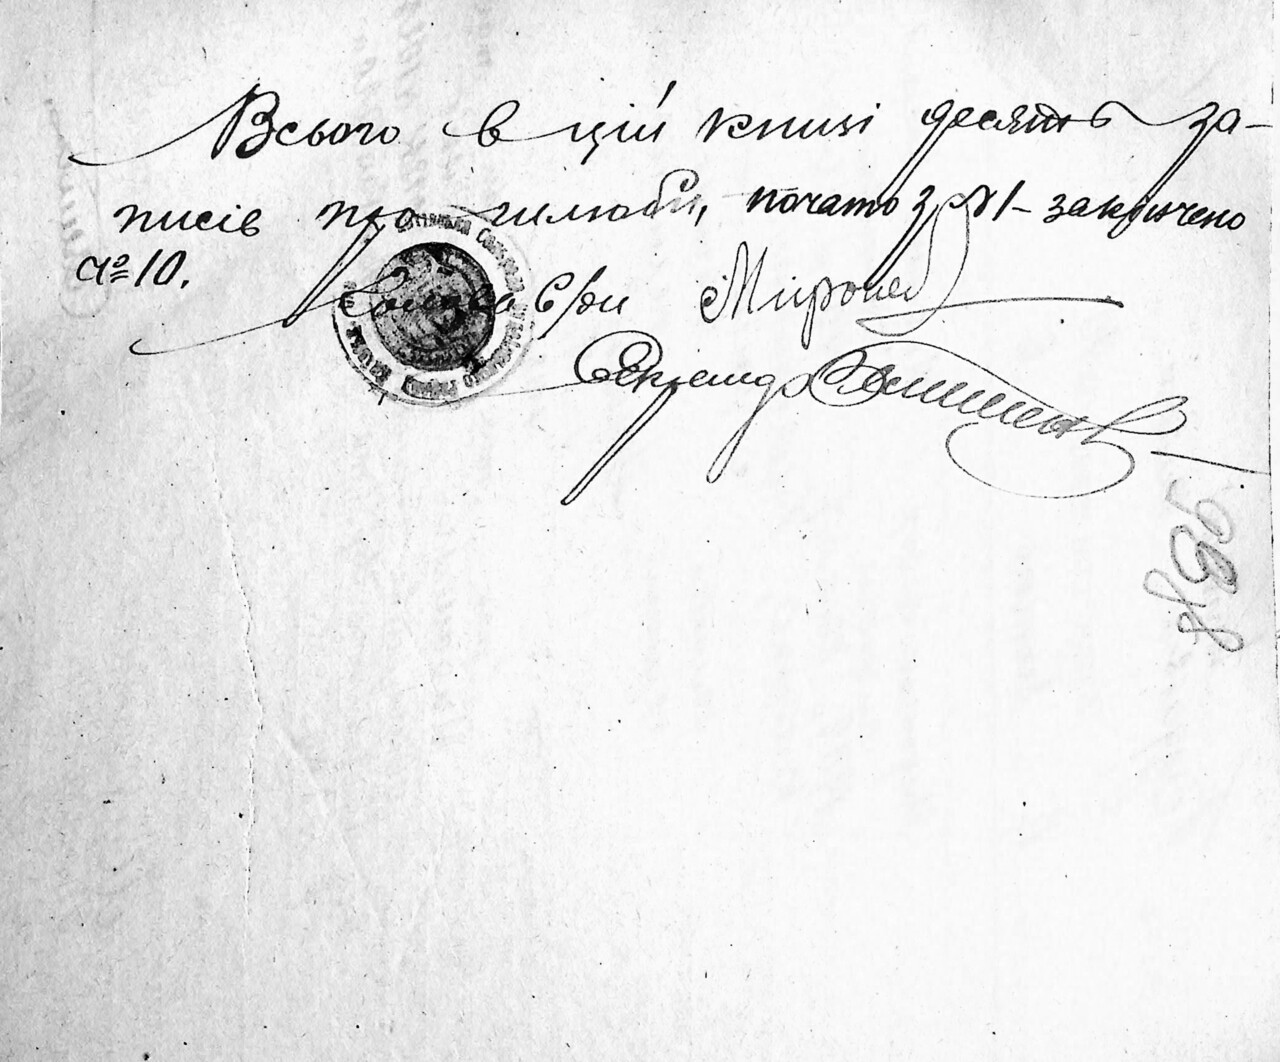 Всього в цій книзі десять за-
писів про шлюби, почато з №1 – закінчено
№10.
Голова С/ди Миронов
Секретар